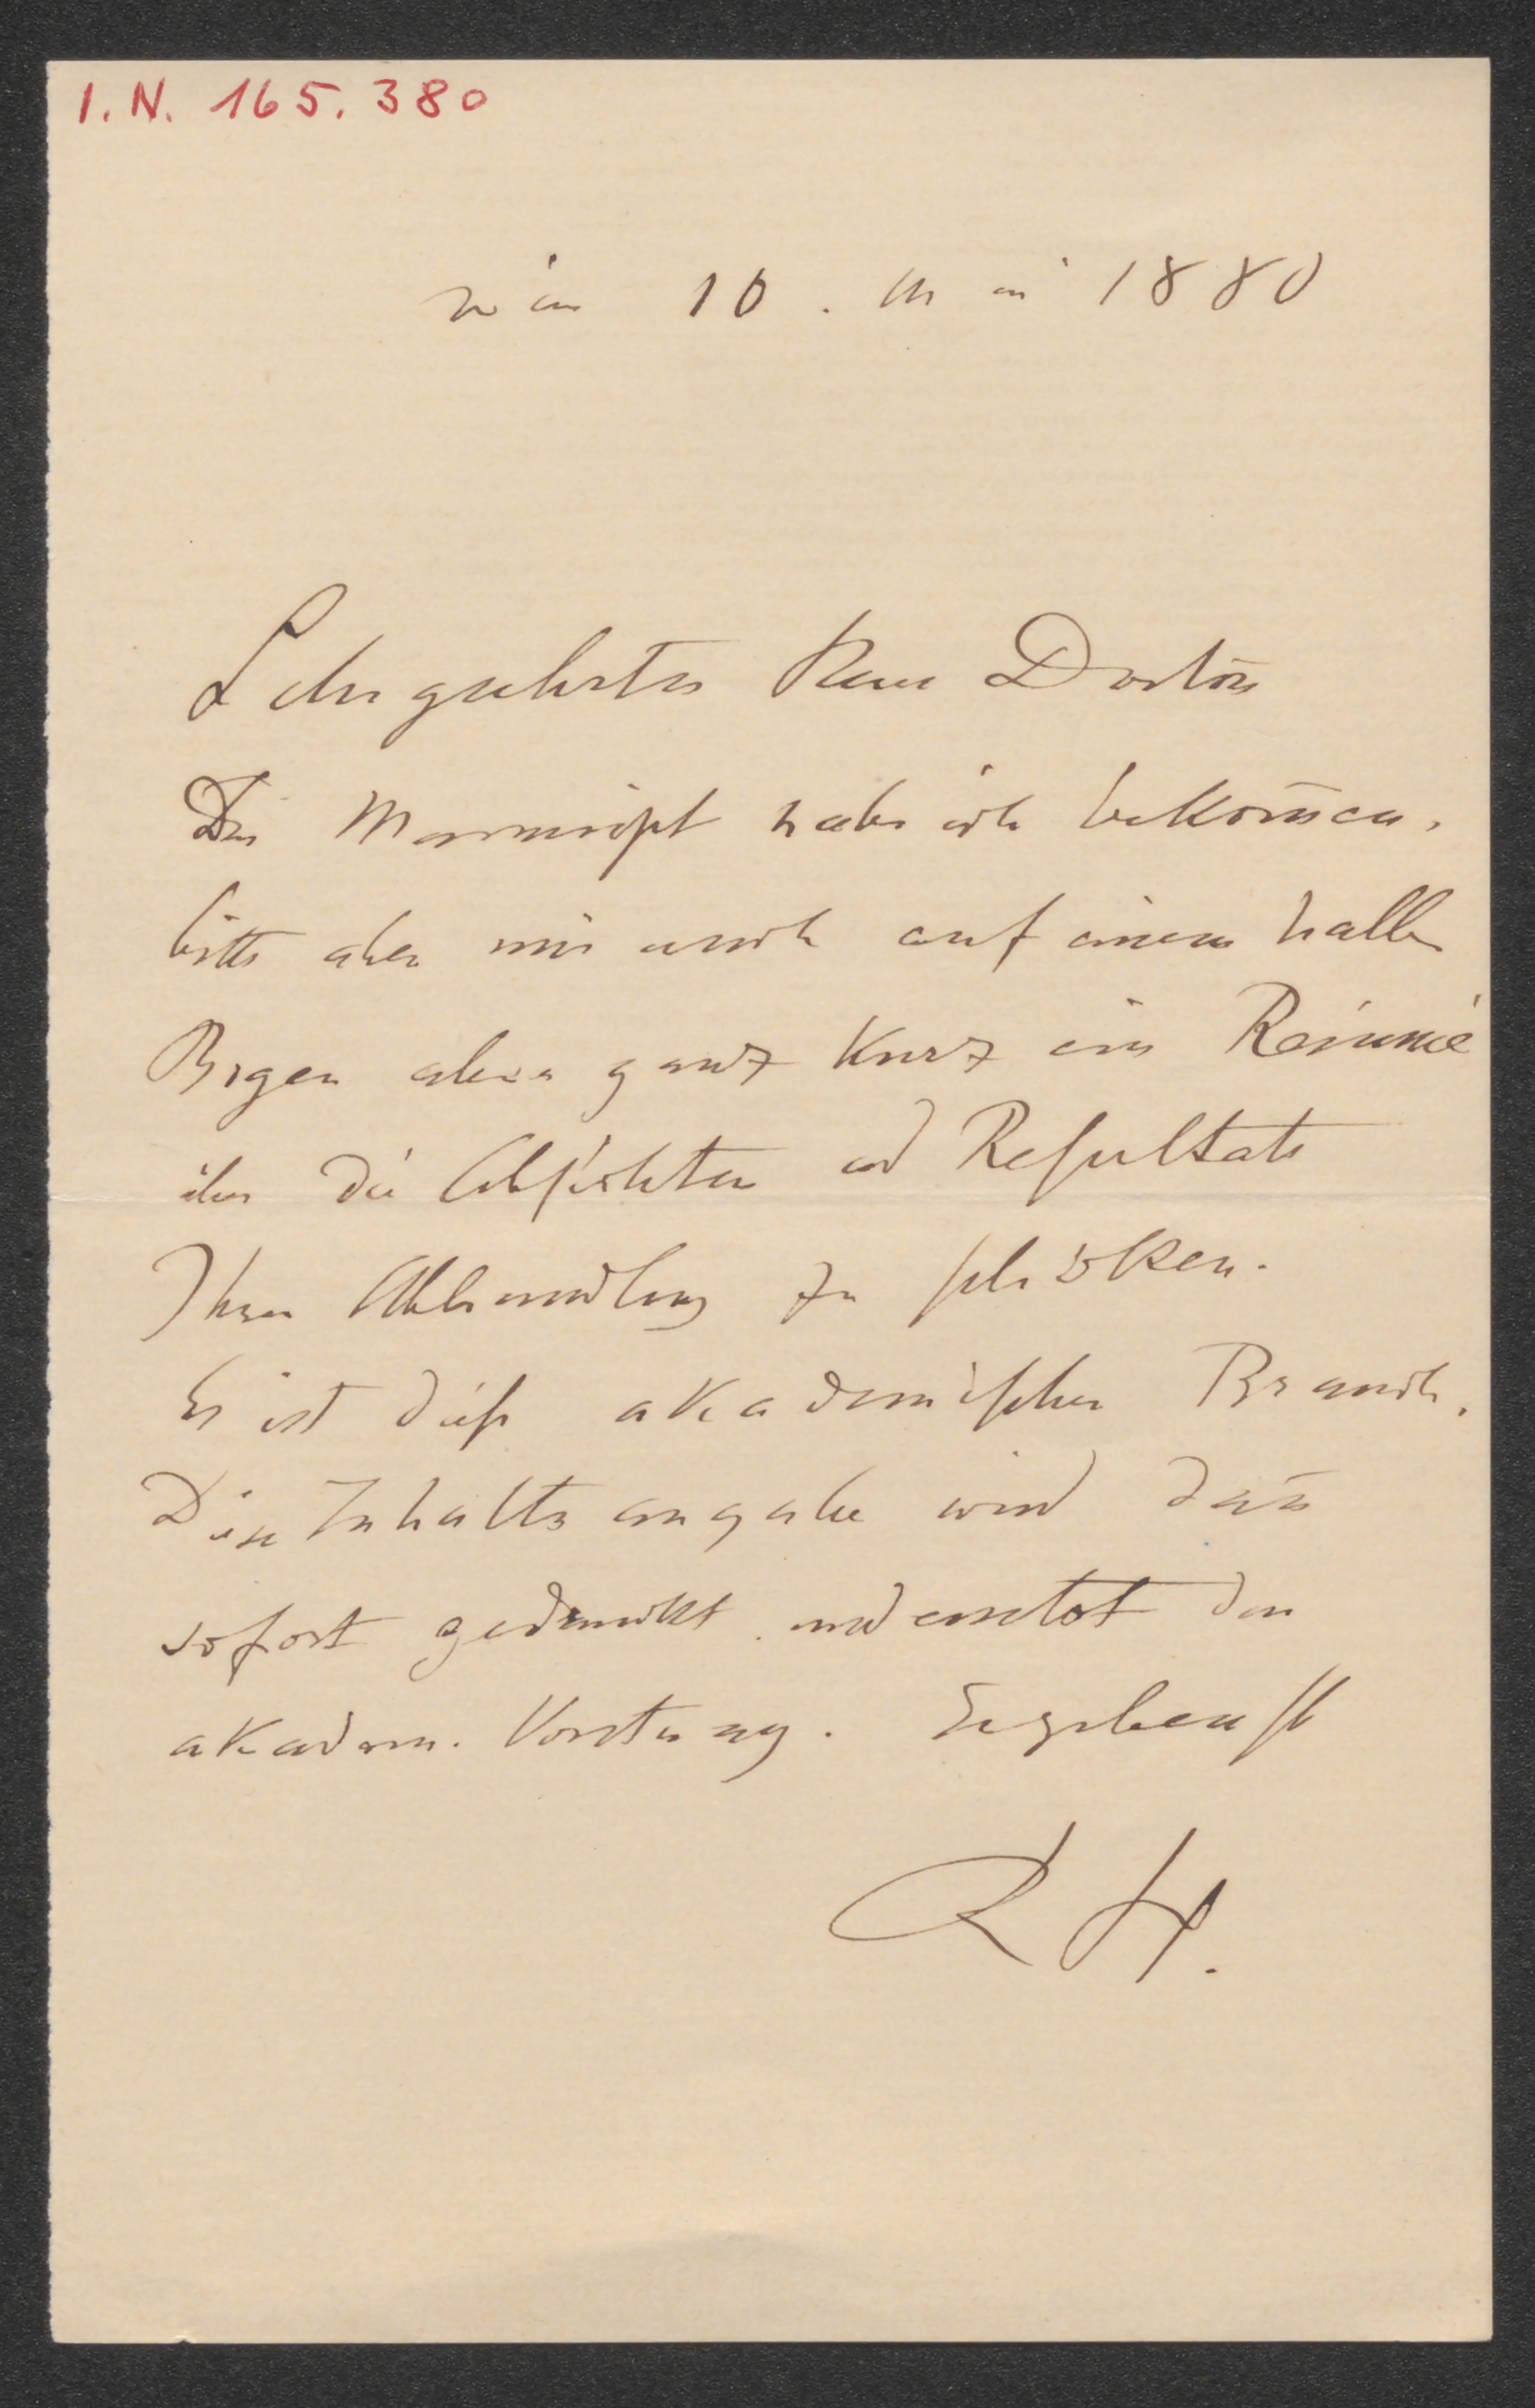 I. N. 165.380
Wien 10. Mai 1880
Sehr geehrter Herr Doctor
Das Manuscript habe ich bekom̄en,
bitte aber mir auch auf einem halben
Bogen aber ganz kurz ein Resumé
über die Absichten und Resultate
Ihrer Abhandlung zu schicken.
Es ist dieß akademischer Brauch.
Die Inhaltsangabe wird dan̄
sofort gedruckt und ersetzt den
akadem. Vortrag. Ergebenst
RH.